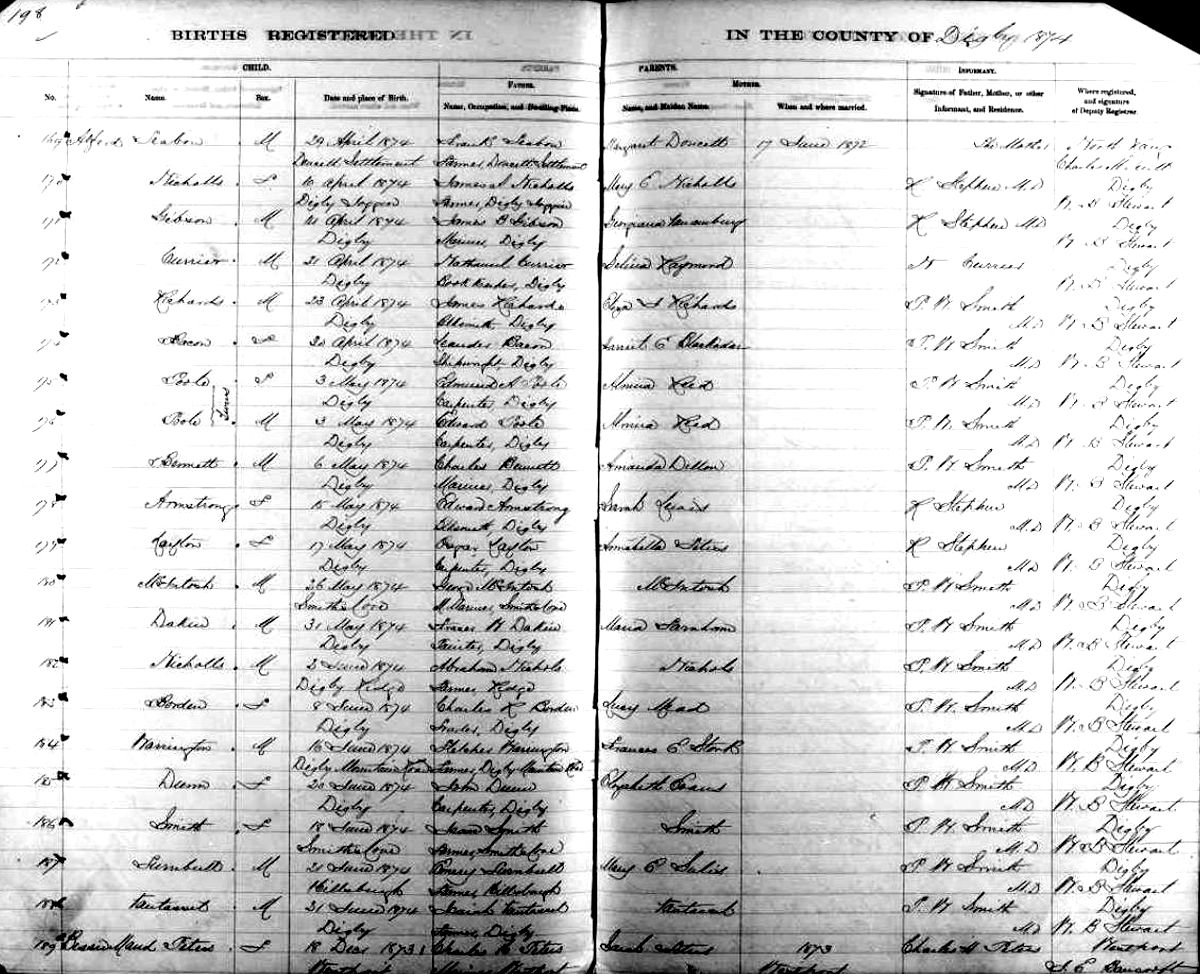 198
BIRTHS REGISTERED IN THE COUNTY OF Digby 1874
CHILD. PARENTS. INFORMANT.
Father. Mother.
No. Name. Sex. Date and place of Birth. Name, Occupation, and Dwelling-Place. Name, and Maiden Name. When and where married. Signature of Father, Mother, or other Informant, and Residence. Where registered, and signature of Deputy Registrar.
169 Seabon M 29 April 1874 Frank Seabon Margaret Doucett 17 June 1872 The Mother North Range
Doucett Settlement Farmer, Doucett Settlement Charles
170 Nicholls F 16 April 1874 Nicholls Mary E Nicholls H Stephen M.D Digby
Digby Farmer, Digby W. B Stewart
171 Gibson M April 1874 James B Gibson Georgiana H Stephen M.D Digby
Digby Mariner, Digby W. B Stewart
172 Currier M 21 April 1874 Nathaniel Currier Selina Raymond N Currier Digby
Digby Book Keeper, Digby W. B Stewart
173 Richards M 23 April 1874 James Richards Eliza Richards P. W Smith Digby
Digby Blksmith, Digby M.D W. B Stewart
174 Bacon F April 1874 Leander Bacon Harriet E P. W Smith Digby
Digby Shipwright, Digby M.D W. B Stewart
175 Poole F 3 May 1874 Edmund A Poole Almira Reed P. W Smith Digby
Digby Carpenter, Digby M.D W. B Stewart
176 Poole M 3 May 1874 Edward Poole Almira Reed P. W. Smith Digby
Digby Carpenter, Digby M.D W. B Stewart
177 Bennett M 6 May 1874 Charles Bennett Amanda Dillon P. W Smith Digby
Digby Mariner, Digby M.D W. B Stewart
178 Armstrong F 15 May 1874 Edward Armstrong Sarah H Stephen Digby
Digby Blksmith, Digby M.D W. B Stewart
179 F 17 May 1874 Annabella Peters H Stephen Digby
Digby Carpenter, Digby M.D W. B Stewart
180 McIntosh M 26 May 1874 McIntosh McIntosh P. W Smith Digby
Smiths Cove Mariner, Smiths Cove M.D W. B Stewart
181 Dakin M 31 May 1874 W Dakin Maria Farnham P. W Smith Digby
Digby Digby M.D W. B Stewart
182 Nicholls M 2 June 1874 Abraham Nichols Nichols P. W Smith Digby
Digby Farmer M.D W. B Stewart
183 Borden F 8 June 1874 Charles H Borden Lucy Mead P. W. Smith Digby
Digby Digby M.D W. B Stewart
184 Warrington M 16 June 1874 Fletcher Warrington Frances E Stark P. W Smith Digby
Digby Mountain Road Farmer, Digby Mountain Road M.D W. B Stewart
185 Dunn F 20 June 1874 John Dunn Elizabeth Evans P. W. Smith Digby
Digby Carpenter, Digby M.D W. B Stewart
186 Smith F 18 June 1874 Smith Smith P. W. Smith Digby
Smiths Cove Farmer, Smiths Cove M.D W. B Stewart
187 Turnbull M 21 June 1874 Turnbull Mary E P. W Smith Digby
Hillsburgh Farmer, Hillsburgh M.D W. B Stewart
188 M 21 June 1874 P. W Smith Digby
Digby Farmer, Digby M.D W. B Stewart
189 Bessie Maud Peters F 18 Dec 1873 Charles H Peters Sarah Peters 1873 Charles H Peters Westport
Westport Westport Westport